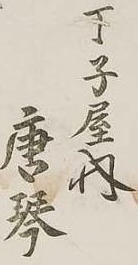 丁子屋内
唐琴